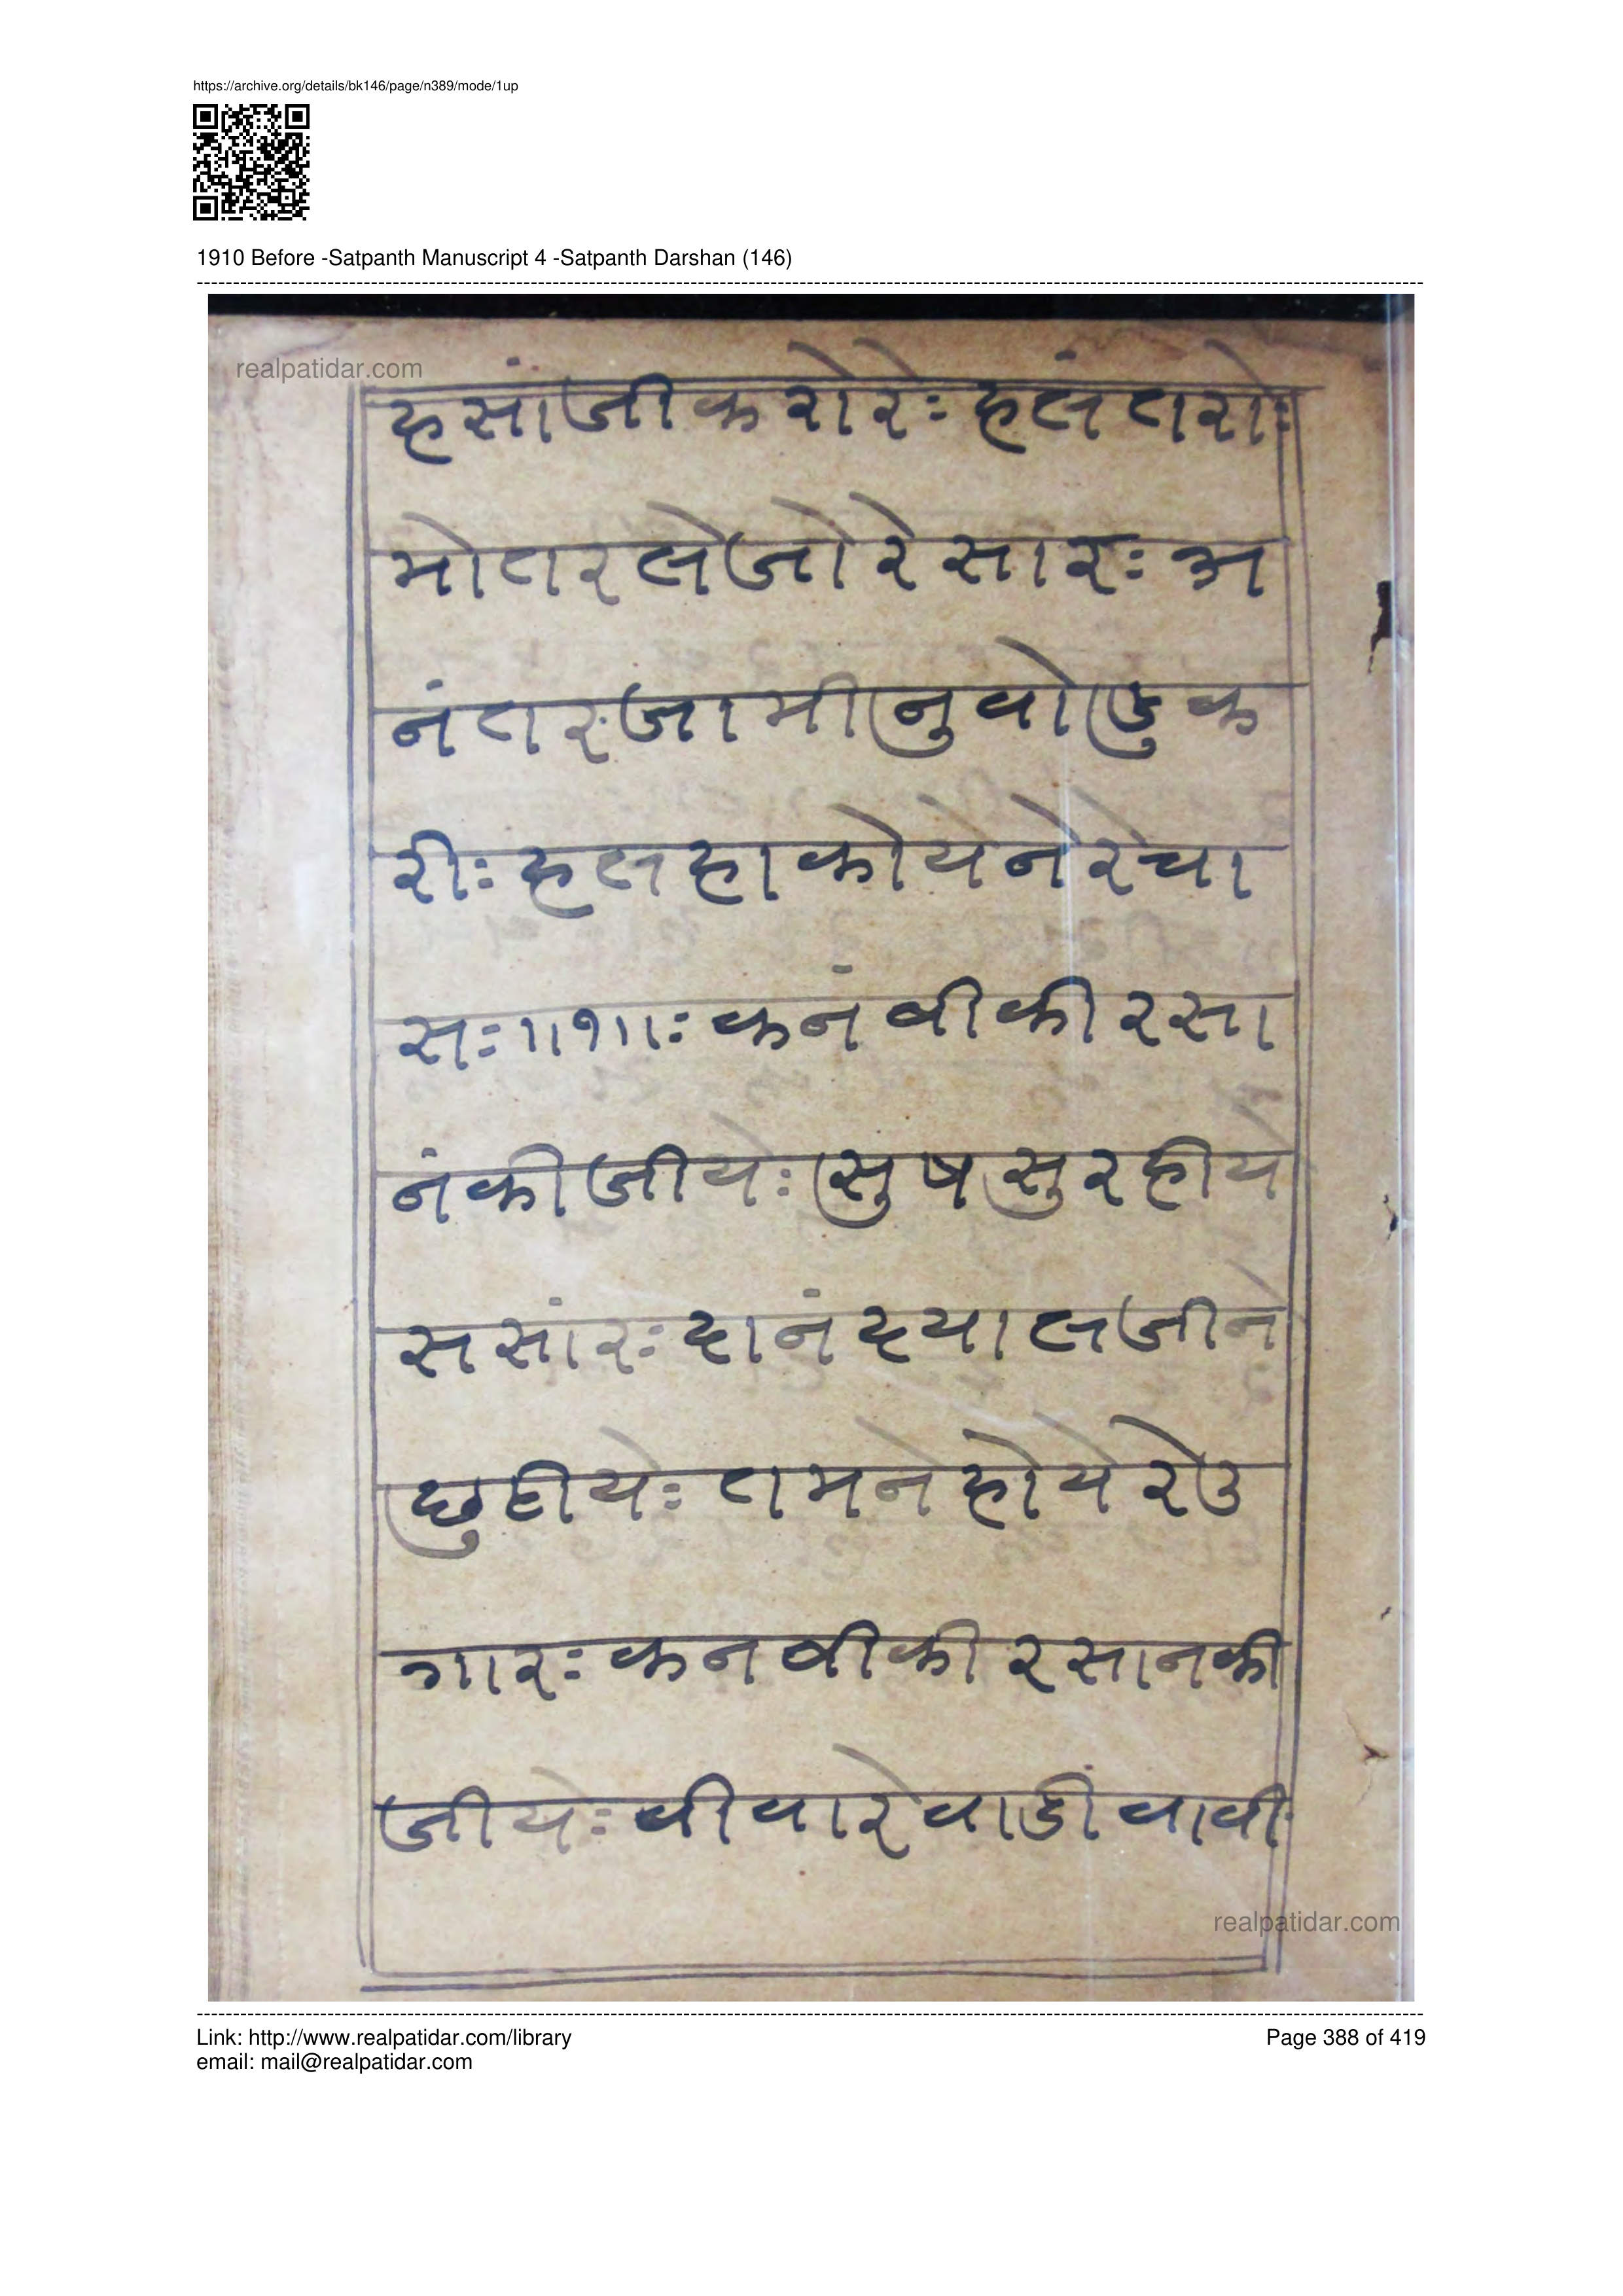 https://archive.org/details/bk146/page/n389/mode/1up
1910 Before -Satpanth Manuscript 4 -Satpanth Darshan (146)
realpatidar.com
हसांजीकरोरेः हलंतरोः
मोतरलेजोरेसारः अ
नंतरजामीनुवोडुक
रीः हलहाकोयेनेरेचा
सः॥१॥ः कनंबीकीरसा
नंकीजीयेः सुषसुरहीये
ससांरः दानंदयालजीने
छुटीयेः तमनेहोयेरेउ
गारः कनबीकीरसानकी
जीयेः वीवारेवाडीवावीः
realpatidar.com
Link: http://www.realpatidar.com/library
Page 388 of 419
email: mail@realpatidar.com